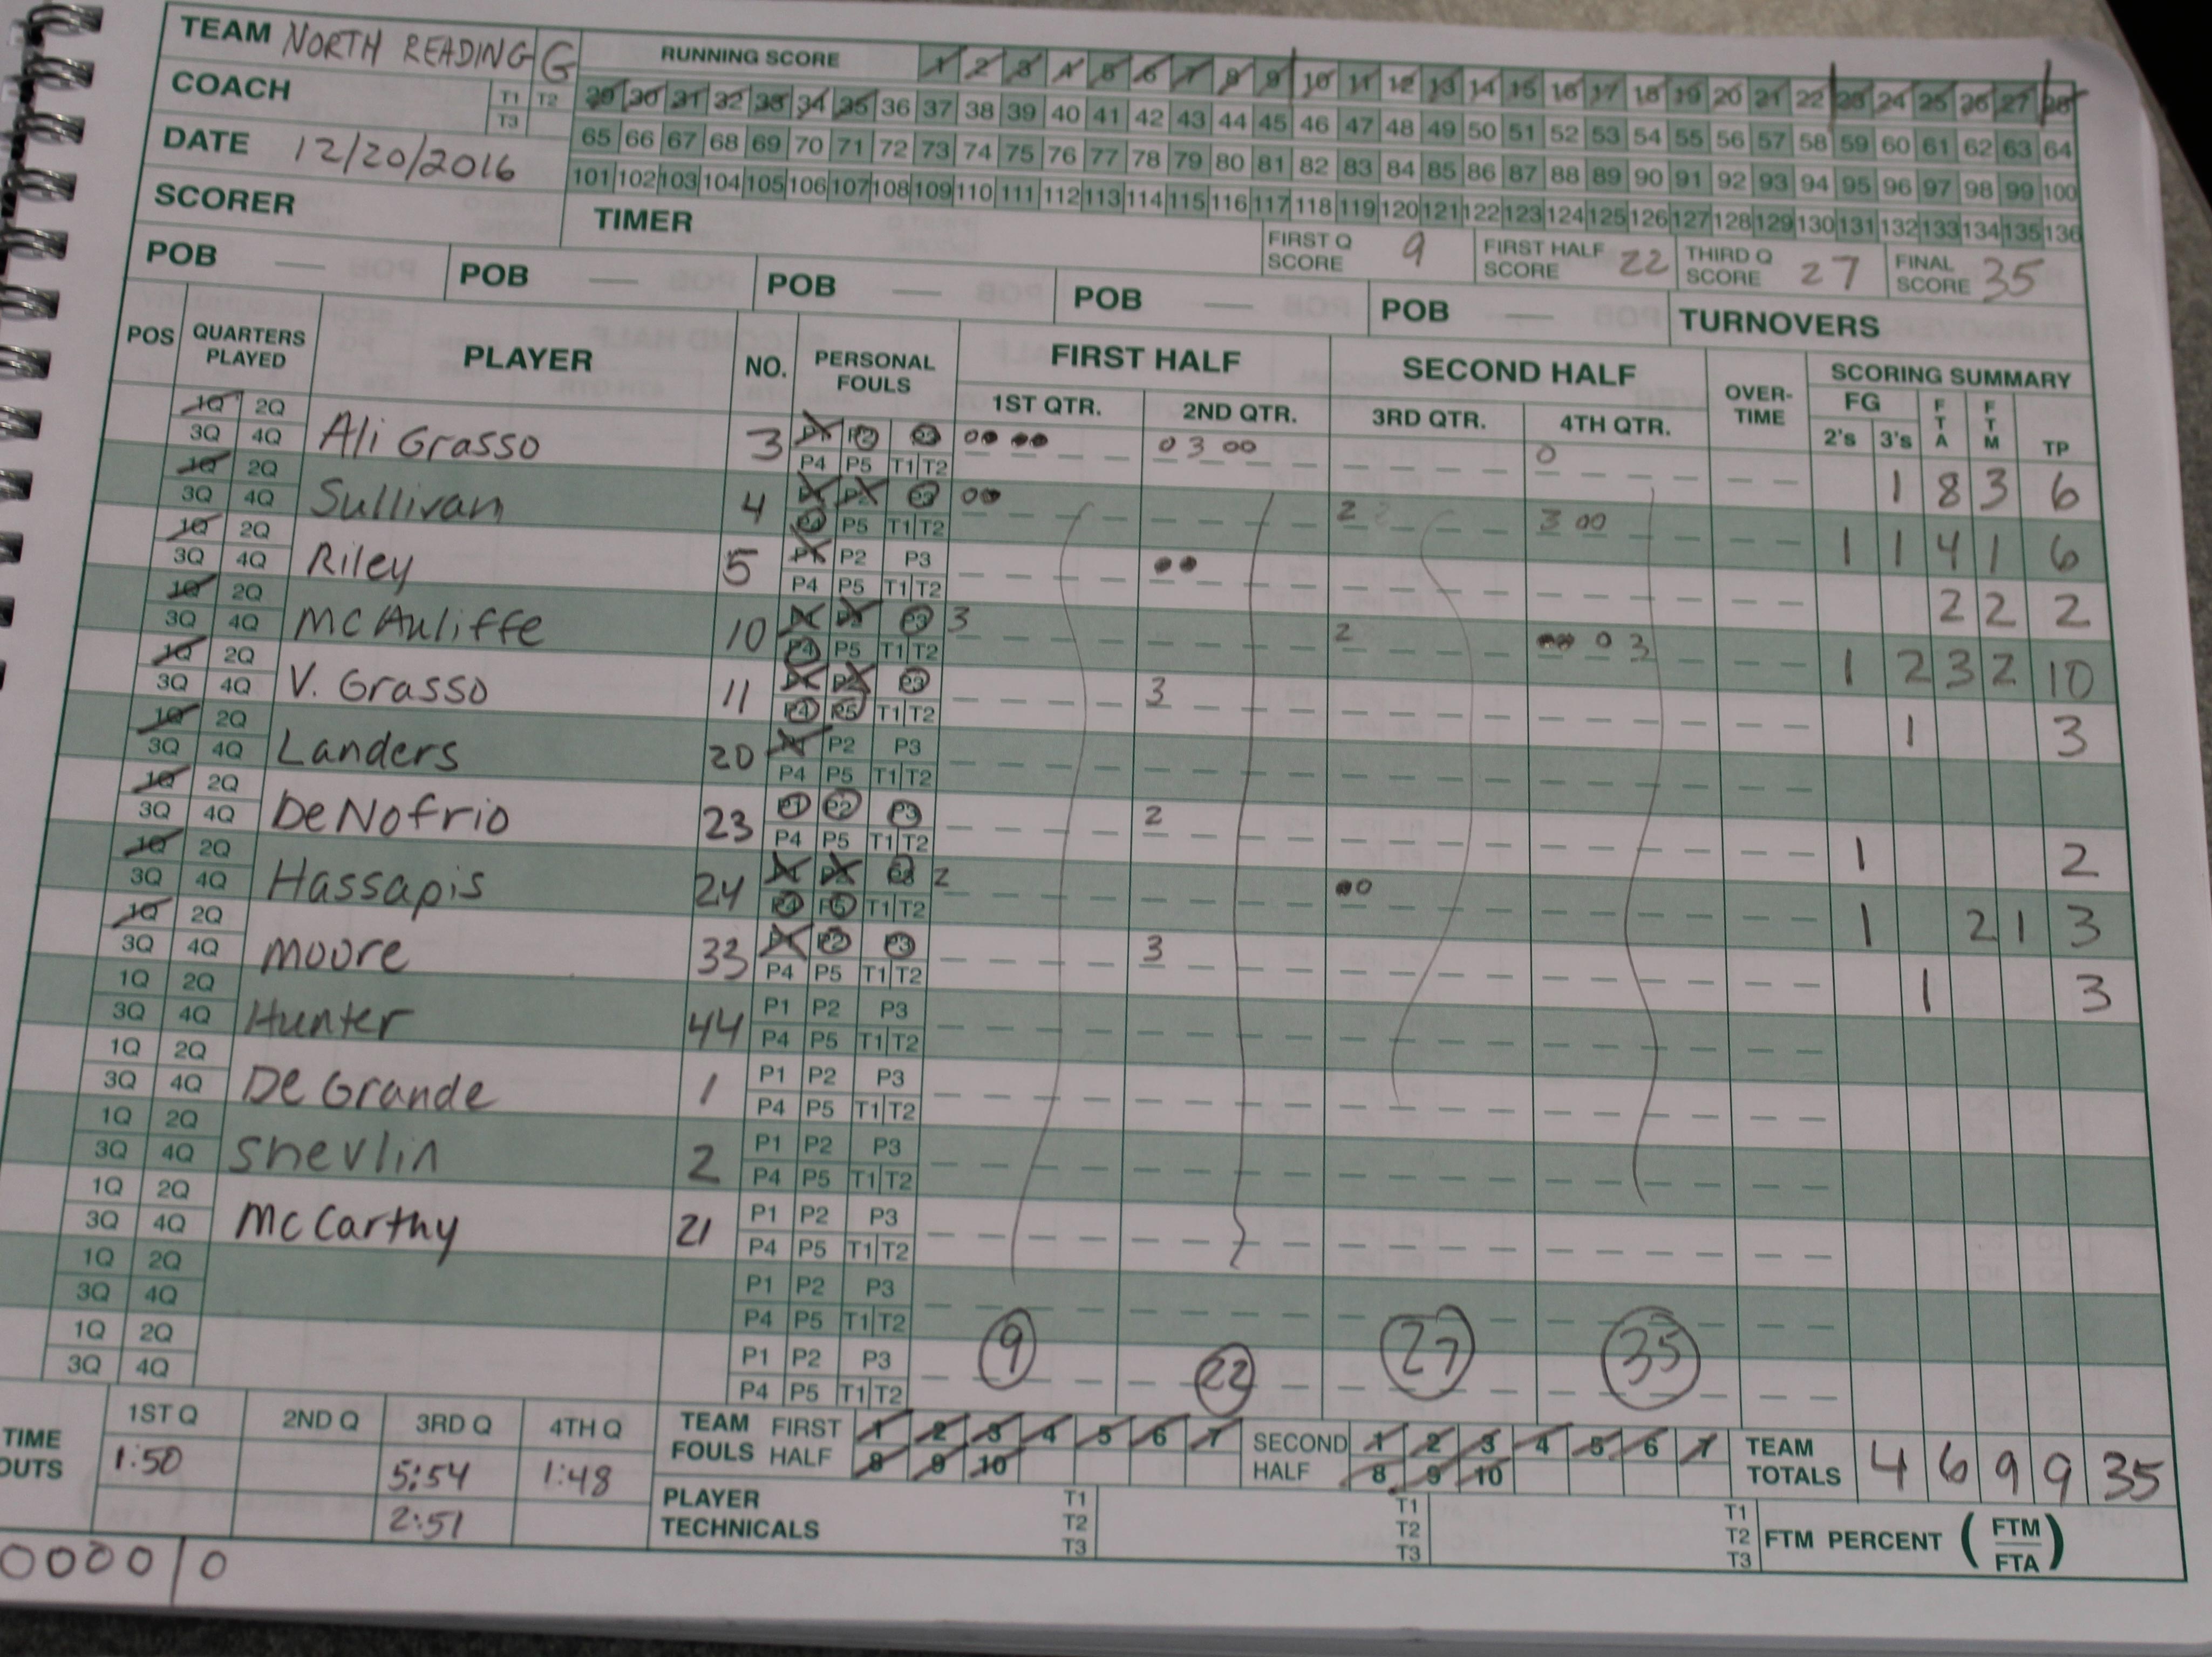 TEAM NORTH READING G RUNNING SCORE 1 2 3 4 5 6 7 8 9 10 11 12 13 14 15 16 17 18 19 20 21 22 23 24 25 26 27 28
COACH T1 T2 T3 29 30 31 32 33 34 35 36 37 38 39 40 41 42 43 44 45 46 47 48 49 50 51 52 53 54 55 56 57 58 59 60 61 62 63 64
DATE 12/20/2016 65 66 67 68 69 70 71 72 73 74 75 76 77 78 79 80 81 82 83 84 85 86 87 88 89 90 91 92 93 94 95 96 97 98 99 100
101 102 103 104 105 106 107 108 109 110 111 112 113 114 115 116 117 118 119 120 121 122 123 124 125 126 127 128 129 130 131 132 133 134 135 136
SCORER TIMER FIRST Q SCORE 9 FIRST HALF SCORE 22 THIRD Q SCORE 27 FINAL SCORE 35
POB — POB — POB — POB — POB — TURNOVERS
POS QUARTERS PLAYED PLAYER NO. PERSONAL FOULS FIRST HALF SECOND HALF OVER-TIME SCORING SUMMARY
1ST QTR. 2ND QTR. 3RD QTR. 4TH QTR. FG 2's 3's FTA FTM TP
1Q 2Q 3Q 4Q Ali Grasso 3 P1 P2 P3 P4 P5 T1 T2 0 3 00 0 1 8 3 6
1Q 2Q 3Q 4Q Sullivan 4 P1 P2 P3 P4 P5 T1 T2 2 3 00 1 1 4 1 6
1Q 2Q 3Q 4Q Riley 5 P1 P2 P3 P4 P5 T1 T2 2 2 2
1Q 2Q 3Q 4Q McAuliffe 10 P1 P2 P3 P4 P5 T1 T2 3 2 0 3 1 2 3 2 10
1Q 2Q 3Q 4Q V. Grasso 11 P1 P2 P3 P4 P5 T1 T2 3 1 3
1Q 2Q 3Q 4Q Landers 20 P1 P2 P3 P4 P5 T1 T2
1Q 2Q 3Q 4Q DeNofrio 23 P1 P2 P3 P4 P5 T1 T2 2 1 2
1Q 2Q 3Q 4Q Hassapis 24 P1 P2 P3 P4 P5 T1 T2 2 0 1 2 1 3
1Q 2Q 3Q 4Q Moore 33 P1 P2 P3 P4 P5 T1 T2 3 1 3
1Q 2Q 3Q 4Q Hunter 44 P1 P2 P3 P4 P5 T1 T2
1Q 2Q 3Q 4Q De Grande 1 P1 P2 P3 P4 P5 T1 T2
1Q 2Q 3Q 4Q Shevlin 2 P1 P2 P3 P4 P5 T1 T2
1Q 2Q 3Q 4Q McCarthy 21 P1 P2 P3 P4 P5 T1 T2
1Q 2Q 3Q 4Q P1 P2 P3 P4 P5 T1 T2
1Q 2Q 3Q 4Q P1 P2 P3 P4 P5 T1 T2
9 22 27 35
TIME OUTS 1ST Q 2ND Q 3RD Q 4TH Q TEAM FOULS FIRST HALF 1 2 3 4 5 6 7 8 9 10 SECOND HALF 1 2 3 4 5 6 7 8 9 10 TEAM TOTALS 4 6 9 9 35
1:50 5:54 1:48
2:51
PLAYER TECHNICALS T1 T2 T3 T1 T2 T3 T1 T2 T3 FTM PERCENT (FTM FTA)
0000/0